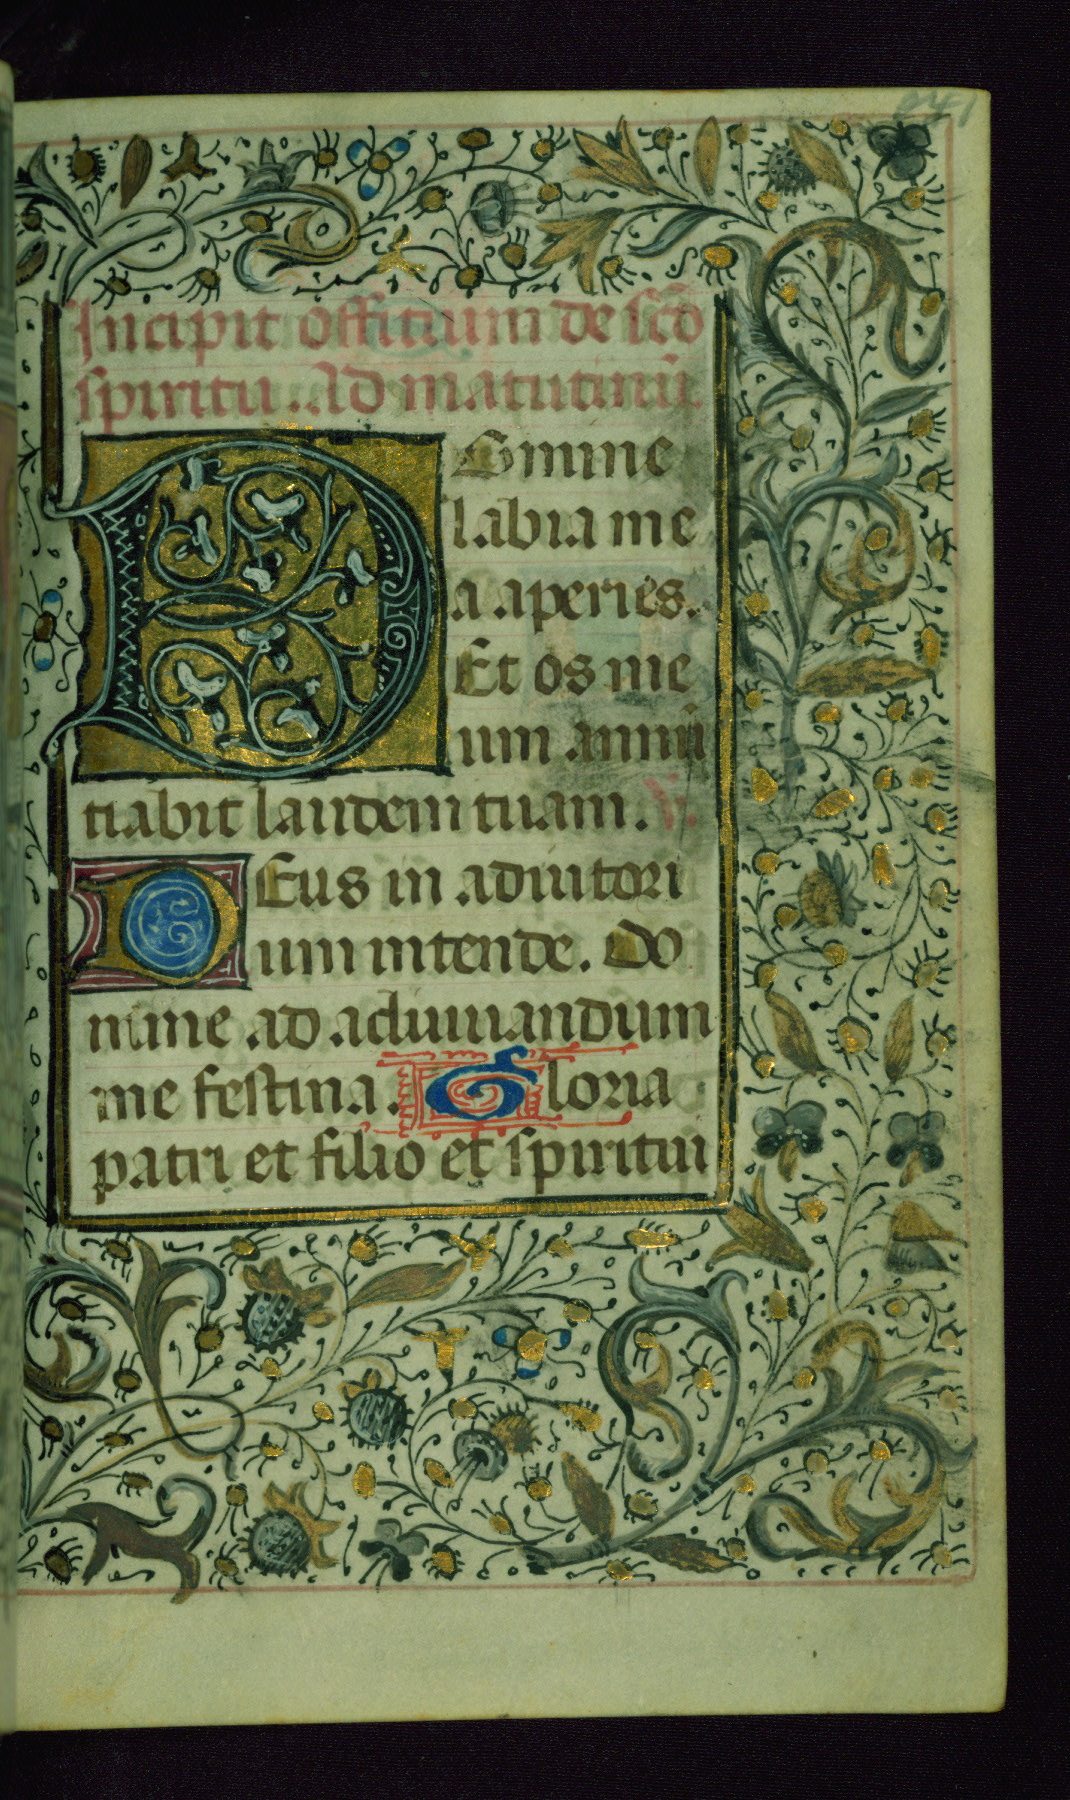 Incipit offitium de sc̄o
spiritu. Ad matutinū.
Domine
labia me
a aperies.
Et os me
um annū
tiabit laudem tuam. V.
Deus in adiutori
um intende. Do
mine ad adiuuandum
me festina. Gloria
patri et filio et spiritui